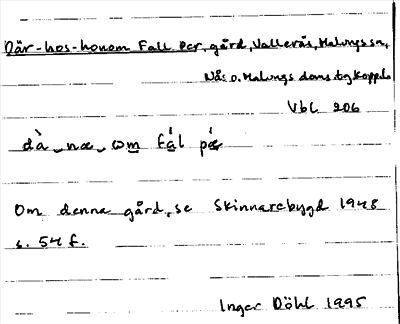 Där-hos-honom Fall Per, gård, Vallerås, Malungs sn,
Nås o. Malungs doms.
Vbl 206
dà næ om fál pé
Om denna gård, se Skinnarebygd 1948
s. 54 f.
Inger Döhl 1995